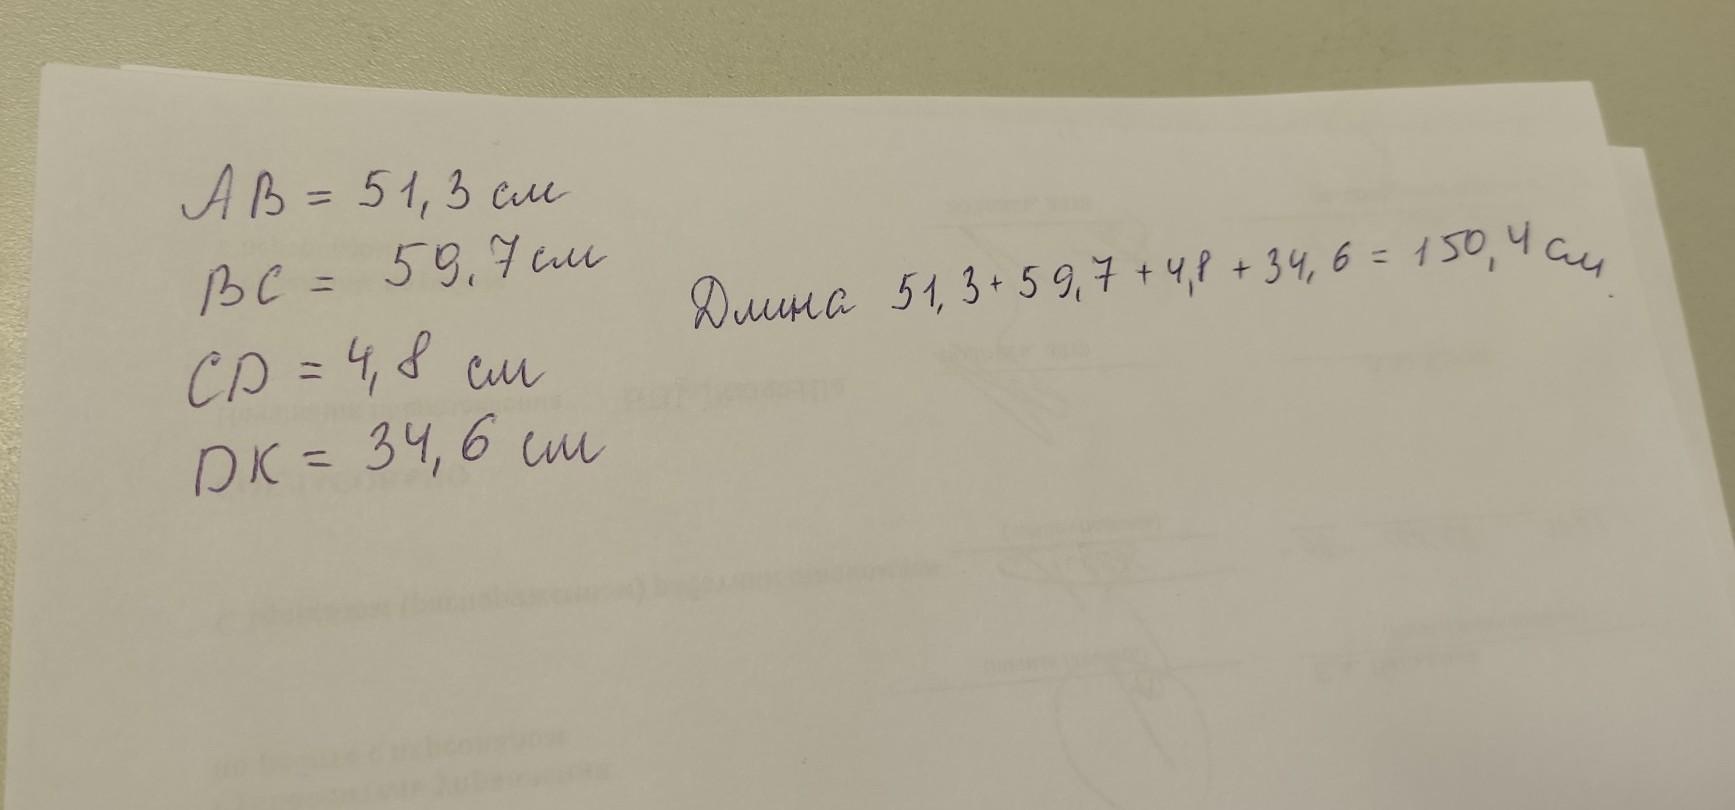 AB = 51,3 см
BC = 59,7 см
CD = 4,8 см
DK = 34,6 см
Длина 51,3 + 59,7 + 4,8 + 34,6 = 150,4 см.